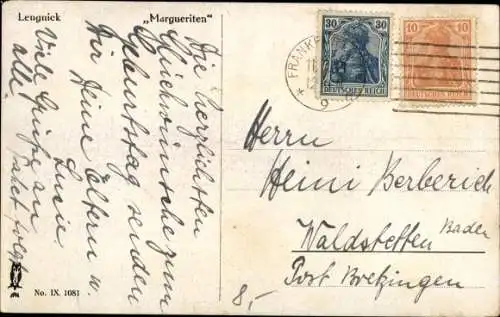 Lengnick
„Margueriten"
Die herzlichsten
Glückwünsche zum
Geburtstag senden
Dir Deine Eltern u.
Lucie.
Viele Grüße an
alle
Paket folgt
30 30
DEUTSCHES REICH
10 10
DEUTSCHES REICH
FRANKF
Herrn
Heini Berberich
Waldstetten
Baden
Post Bretzingen
8,-
No. IX. 1081